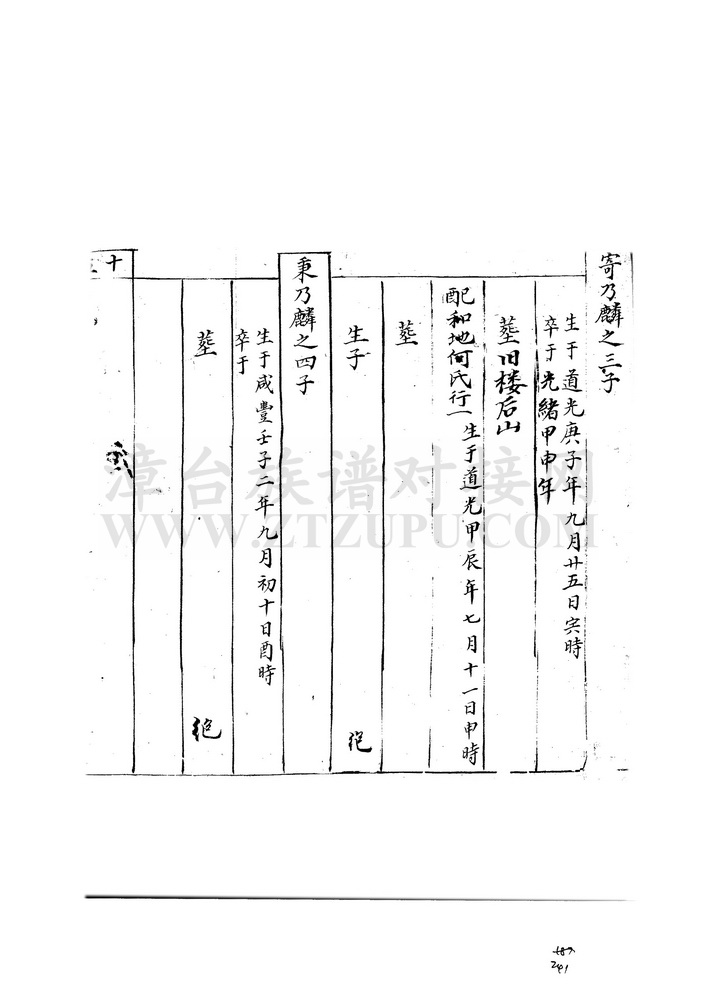 寄乃麟之三子
生于道光庚子年九月廿五日寅時
卒于光緒甲申年
塟旧楼后山
配和地何氏行一生于道光甲辰年七月十一日申時
塟
生子 绝
秉乃麟之四子
生于咸豐壬子二年九月初十日酉時
卒于
塟 绝
十
漳台族谱对接网
WWW.ZTZUPU.COM
241